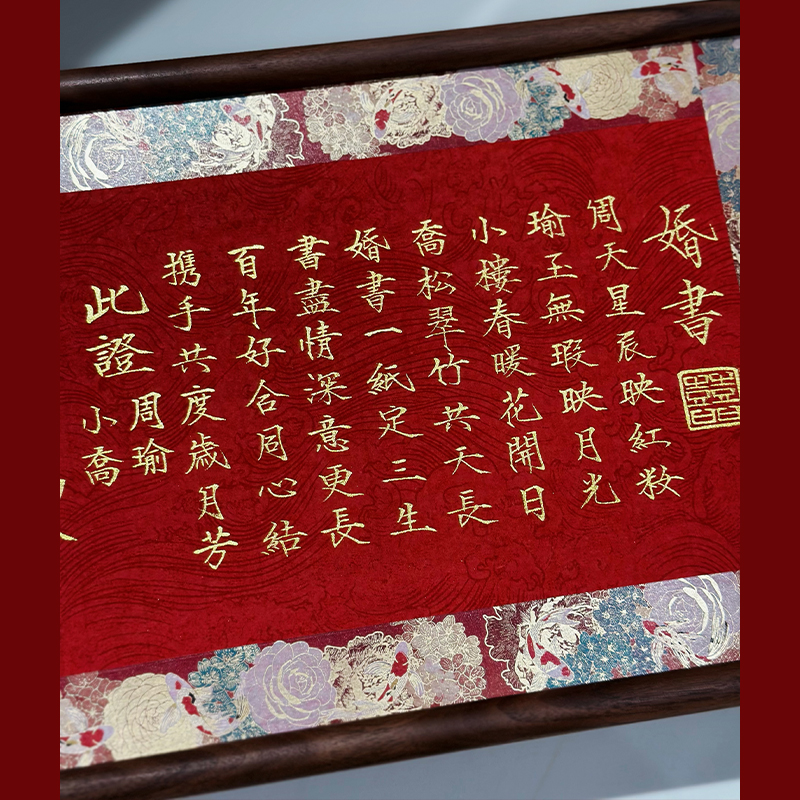 婚書
周天星辰映紅妝
瑜玉無瑕映月光
小樓春暖花開日
喬松翠竹共天長
婚書一紙定三生
書盡情深意更長
百年好合同心結
携手共度歲月芳
此證
周瑜
小喬